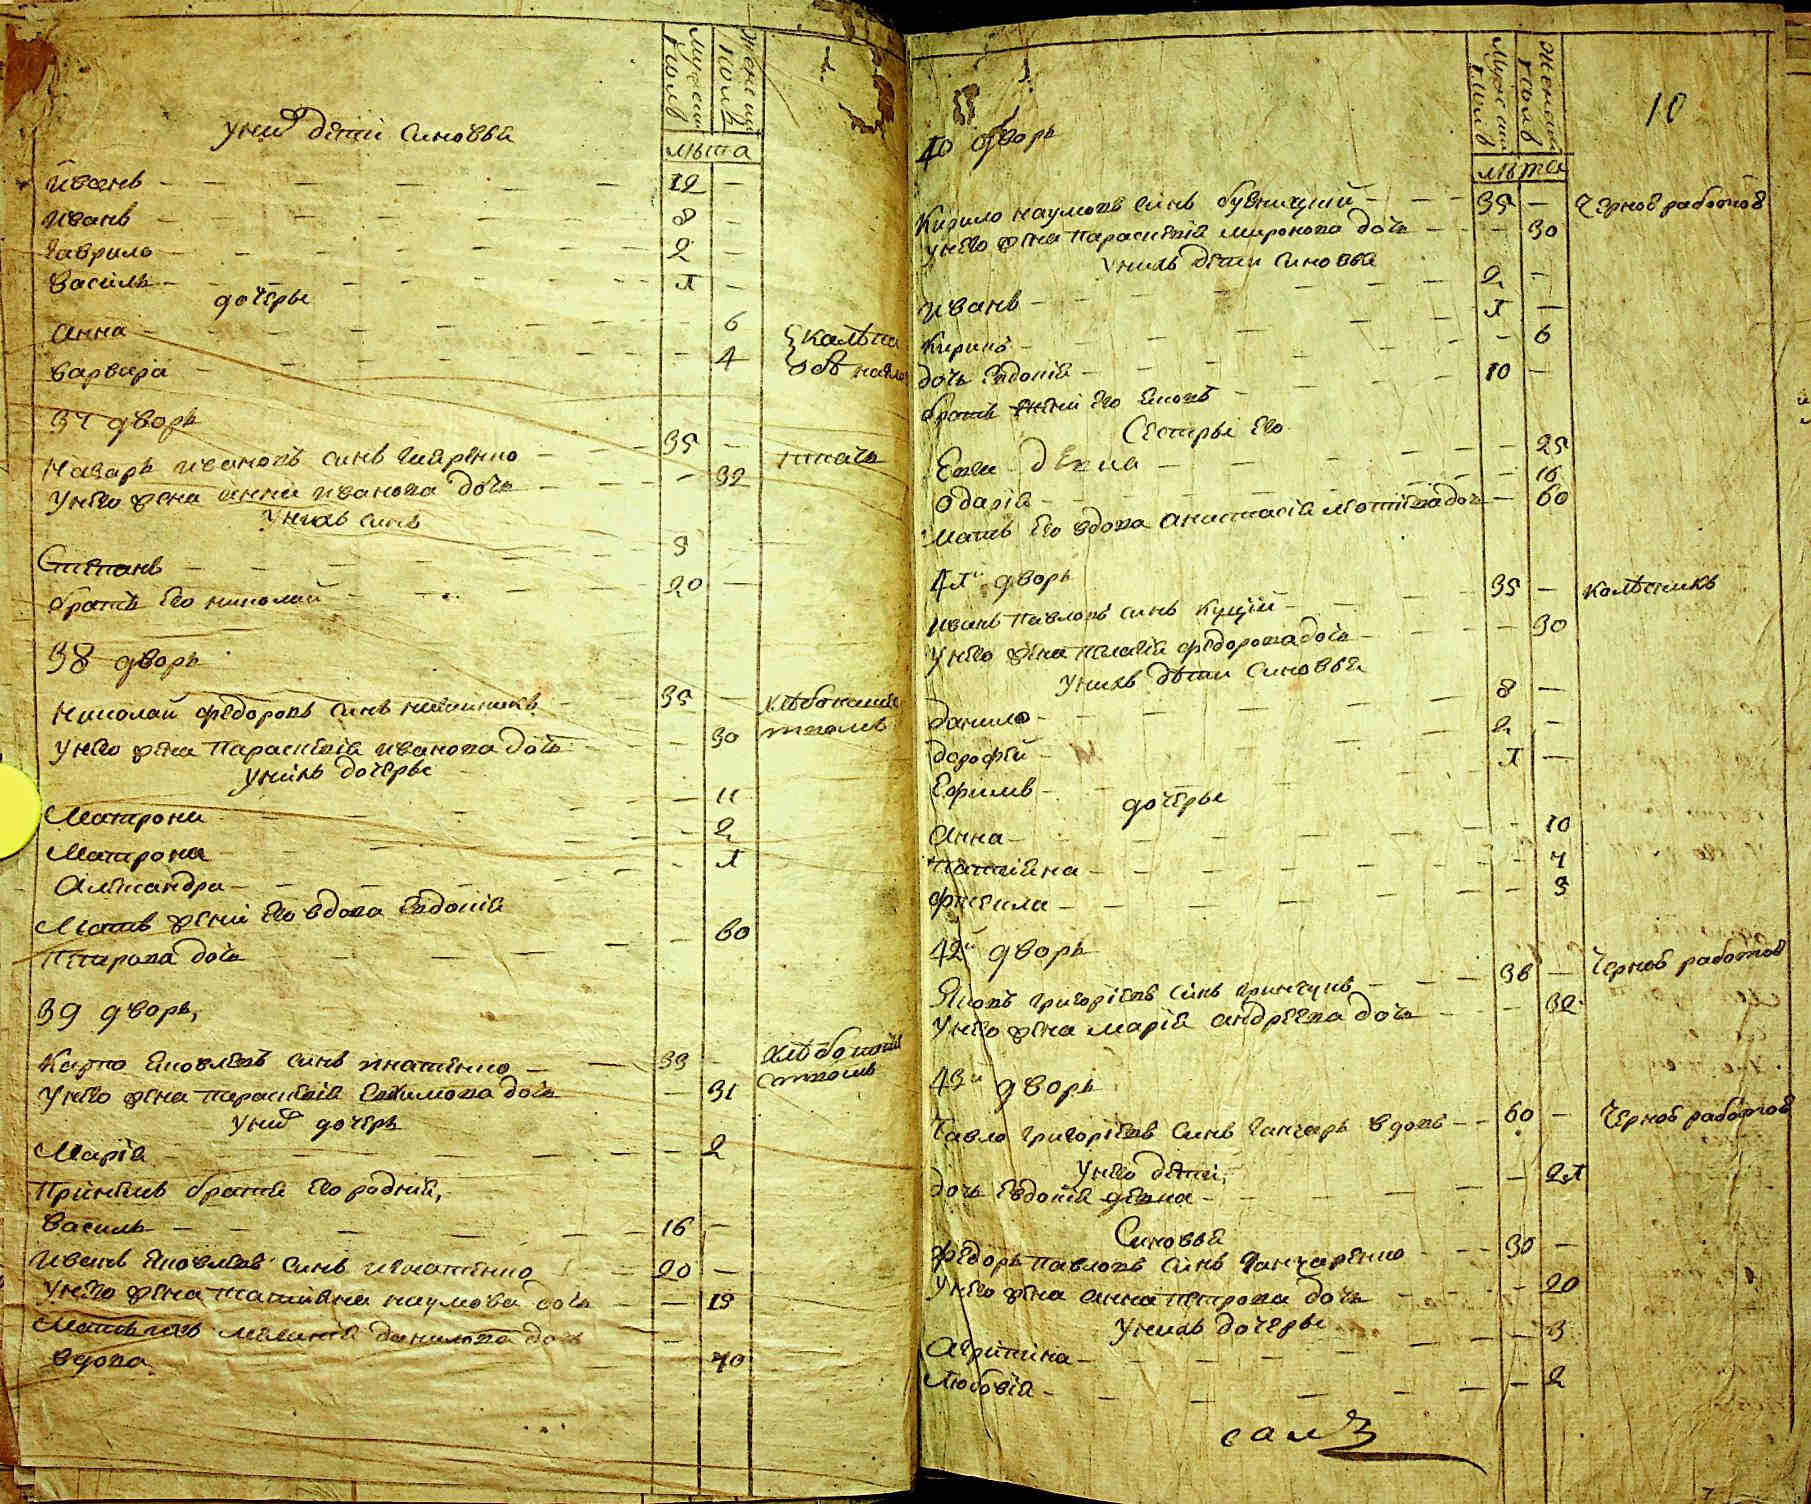 Мужеский полъ
Женский полъ
лѣта
у них дѣти синовья
Иванъ 12
Иванъ 8
Гаврило 2
Василь 1
дочеры
Анна 6
Варвара 4
37 дворъ
Назаръ Ивановъ синъ 35
У него жена Анна Иванова дочь 32
У нихъ синъ
Степанъ 3
братъ его Николай 20
38 дворъ
Николай Федоровъ синъ 35
У него жена Параскевія Иванова дочь 30
У нихъ дочеры
Матрона 11
Матрона 2
Александра 1
Мать жени его вдова Евдокія
Петрова дочь 60
39 дворъ
Карпо Яковлевъ синъ Игнатенко 33
У него жена Параскевія Евхимова дочь 31
У них дочерь
Марія 2
При немъ братья его родніи,
Василь 16
Иванъ Яковлевъ синъ Игнатенко 20
У него жена Татіяна Наумова дочь 19
Мать ихъ Меланія Данилова дочь
вдова 70
10
Мужеский полъ
Женский полъ
лѣта
40 дворъ
Кирило Наумовъ синъ 35 Чернорабочой
У него жена Параскевія Миронова дочь 30
У нихъ дѣти синовья
Иванъ 2
Кирило 1
дочь Евдокія 6
братъ жени его Яковъ 10
Сестры его
девка 25
Одарія 16
Мать его вдова Анастасія дочь 60
41й дворъ
Иванъ Павловъ синъ Куцій 35 колѣсникъ
У него жена Пелагія Федорова дочь 30
У нихъ дѣти синовья
Данило 8
Дорофѣй 2
Ефимъ 1
дочеры
Анна 10
Татіяна 7
Фекила 3
42й дворъ
Яковъ Григоріевъ синъ 36 Чернорабочой
У него жена Марія Андреева дочь 32
43й дворъ
Павло Григоріевъ синъ Ганчаръ вдовъ 60 Чернорабочой
У него дѣти,
дочь Евдокія девка 21
Синовья
Федоръ Павловъ синъ Ганчаренко 30
У него жена Анна Петрова дочь 20
У нихъ дочеры
Агрипина 3
Любовія 2